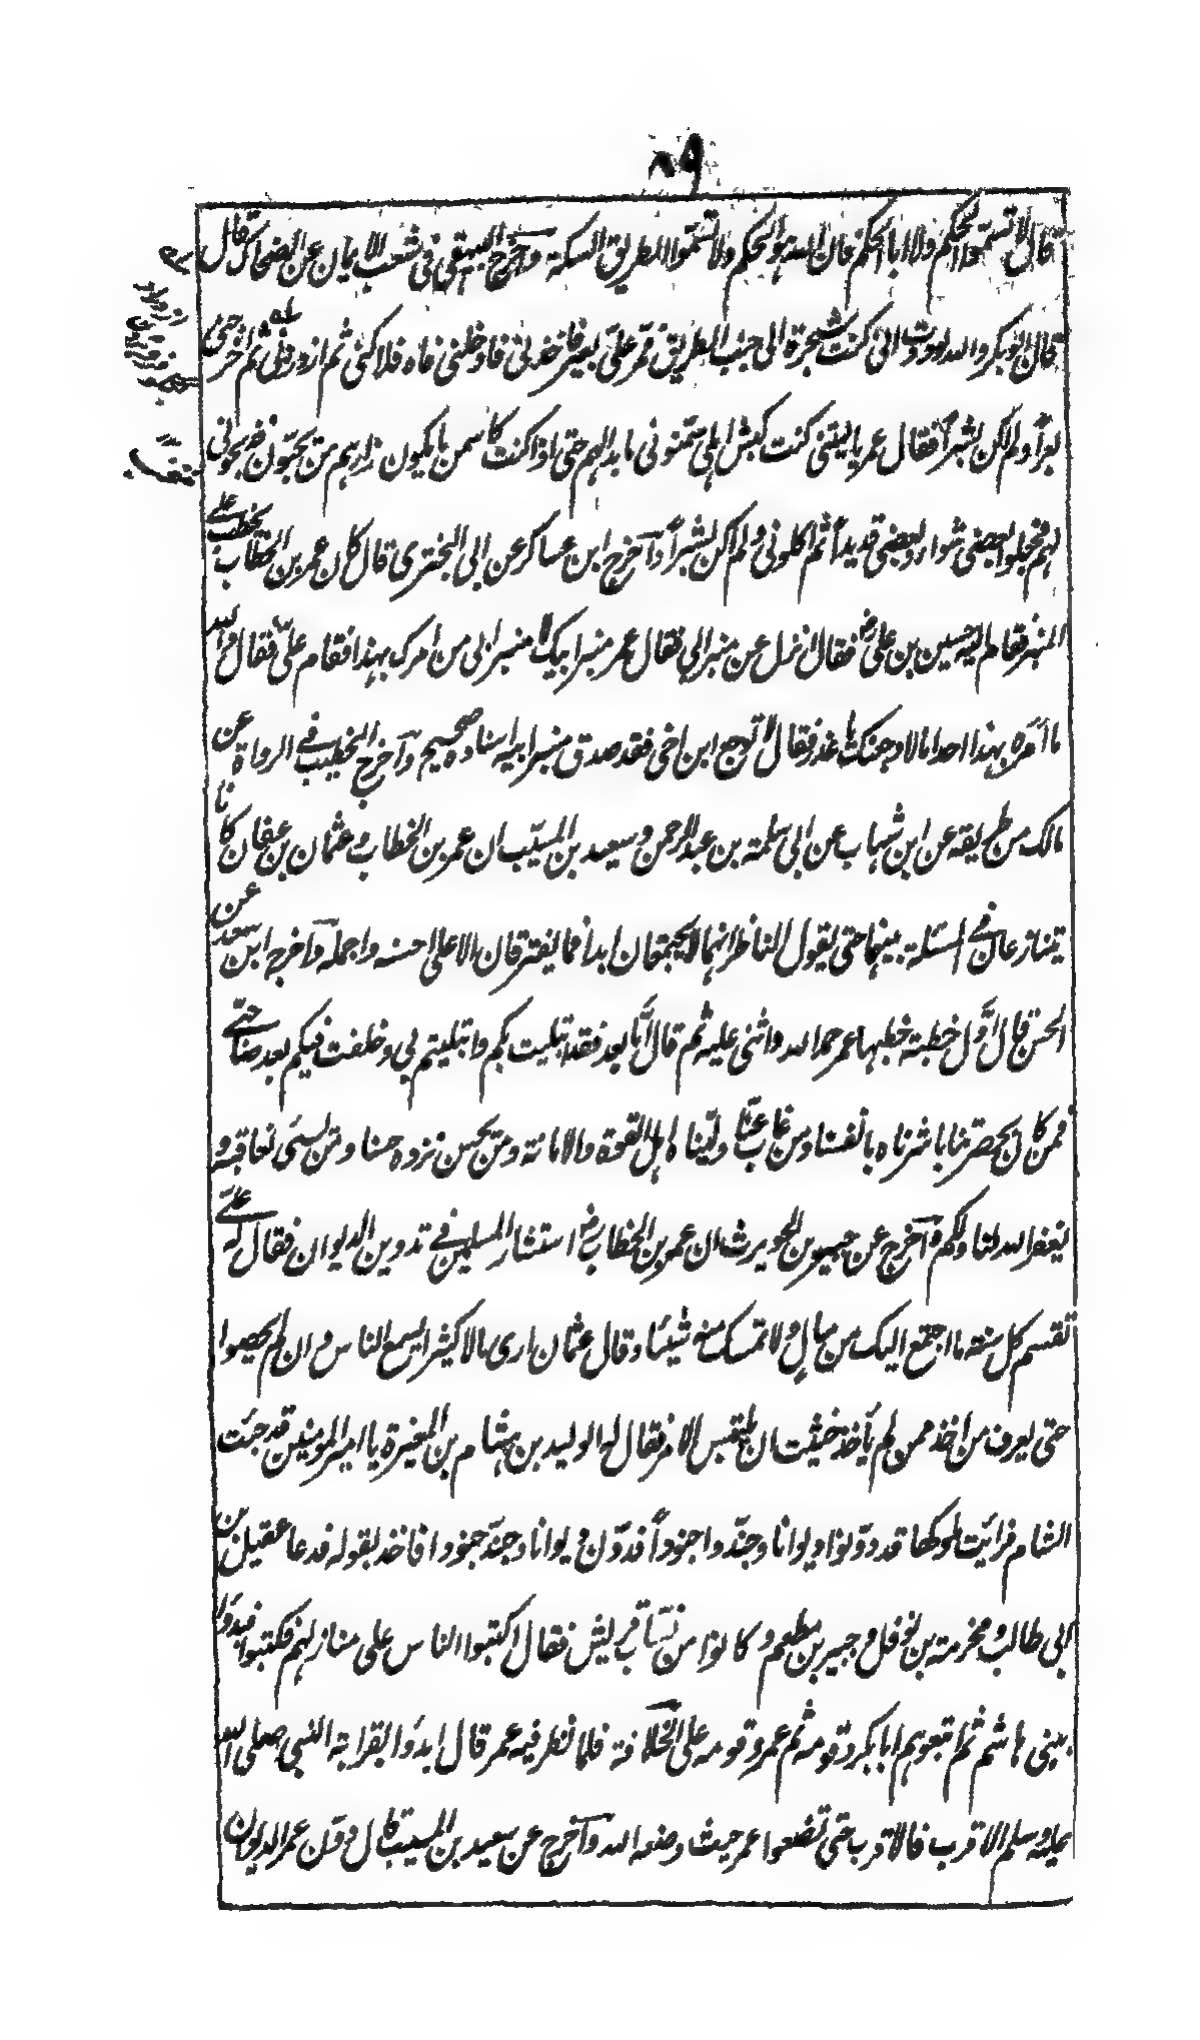 ٨٩
قال لا تسموا الحكم ولا ابا الحكم فان الله هو الحكم ولا تسموا الطريق السكة وآخرج البيهقي في شعب الايمان عن الضحاك قال
قال ابو بكر والله لوددت اني كنت شجرة الى جنب الطريق فمر علي بعير فاخذني فادخلني فاه فلاكني ثم ازدردني ثم اخرجني
بعراً ولم اكن بشراً فقال عمر يا ليتني كنت كبش اهلي سمنوني ما بدا لهم حتى اذا كنت كاسمن ما يكون زارهم من يحبون فذبحوني
لهم فجعلوا بعضي شواء وبعضي قديداً ثم اكلوني ولم اكن بشراً وآخرج ابن عساكر عن ابي البختري قال كان عمر بن الخطاب يخطب على
المنبر فقام اليه حسين بن علي رض فقال انزل عن منبر ابي فقال عمر منبر ابيك لا منبر ابي من امرك بهذا فقام علي فقال والله
ما امره بهذا احد اما لاوجعنك يا غدر فقال لا توجع ابن اخي فقد صدق منبر ابيه اسناده صحيح وآخرج الخطيب في الرواة عن
مالك من طريقه عن ابن شهاب عن ابي سلمة بن عبد الرحمن وسعيد بن المسيب ان عمر بن الخطاب وعثمان بن عفان كانا
يتنازعان في المسئلة بينهما حتى يقول الناظر انهما لا يجتمعان ابداً فما يفترقان الا على احسنه واجمله وآخرج ابن سعد عن
الحسن قال اول خطبة خطبها عمر حمد الله واثنى عليه ثم قال اما بعد فقد ابتليت بكم وابتليتم بي وخلفت فيكم بعد صاحبي
فمن كان بحضرتنا باشرناه بانفسنا ومن غاب عنا ولينا اهل القوة والامانة ومن يحسن نزده حسنا ومن يسئ نعاقبه و
يغفر الله لنا ولكم وآخرج عن جبير بن الحويرث ان عمر بن الخطاب رض استشار المسلمين في تدوين الديوان فقال له علي
تقسم كل سنة ما اجتمع اليك من مال ولا تمسك منه شيئا وقال عثمان ارى مالا كثيرا يسع الناس وان لم يحصوا
حتى يعرف من اخذ ممن لم يأخذ خشيت ان يلتبس الامر فقال له الوليد بن هشام بن المغيرة يا امير المومنين قد جئت
الشام فرايت ملوكها قد دونوا ديوانا وجندوا جنوداً فدون ديوانا وجند جنودا فاخذ بقوله فدعا عقيل بن
ابي طالب ومخرمة بن نوفل وجبير بن مطعم وكانوا من نساب قريش فقال اكتبوا الناس على منازلهم فكتبوا فبدوا
ببني هاشم ثم اتبعوهم ابا بكر وقومه ثم عمر وقومه على الخلافة فلما نظر فيه عمر قال ابدوا بقرابة النبي صلى الله
عليه وسلم الاقرب فالاقرب حتى تضعوا عمر حيث وضعه الله وآخرج عن سعيد بن المسيب قال دون عمر الديوان